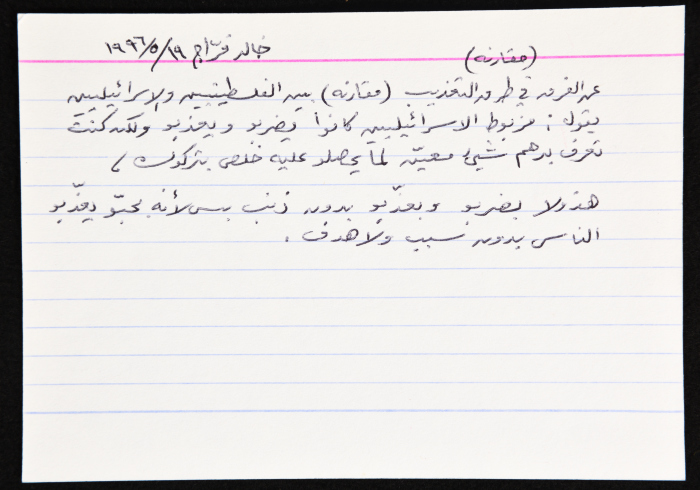 (مقارنه) خالد فرّاج ١٩/٥/١٩٩٦
عن الفرق في طرق التعذيب (مقارنه) بين الفلسطينيين والإسرائيليين
يقول : مزبوط الاسرائيليين كانوا يضربو ويعذبو ولكن كنت
تعرف بدهم شيئ معيّن لما يحصلو عليه خلص بتركوك /
هذولا بضربو وبعذّبو بدون ذنب بس لأنه بحبّو يعذّبو
الناس بدون سبب ولا هدف .